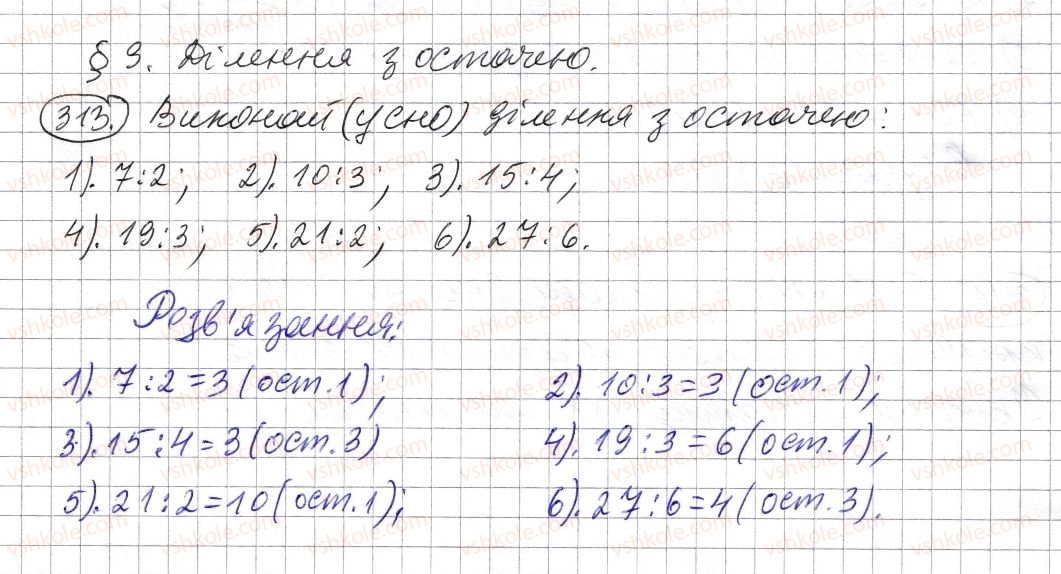 § 9. Ділення з остачею.
313. Виконай (усно) ділення з остачею:
1). 7:2; 2). 10:3; 3). 15:4;
4). 19:3; 5). 21:2; 6). 27:6.
Розв'язання:
1). 7:2=3 (ост. 1); 2). 10:3=3 (ост. 1);
3). 15:4=3 (ост. 3) 4). 19:3=6 (ост. 1);
5). 21:2=10 (ост. 1); 6). 27:6=4 (ост. 3).